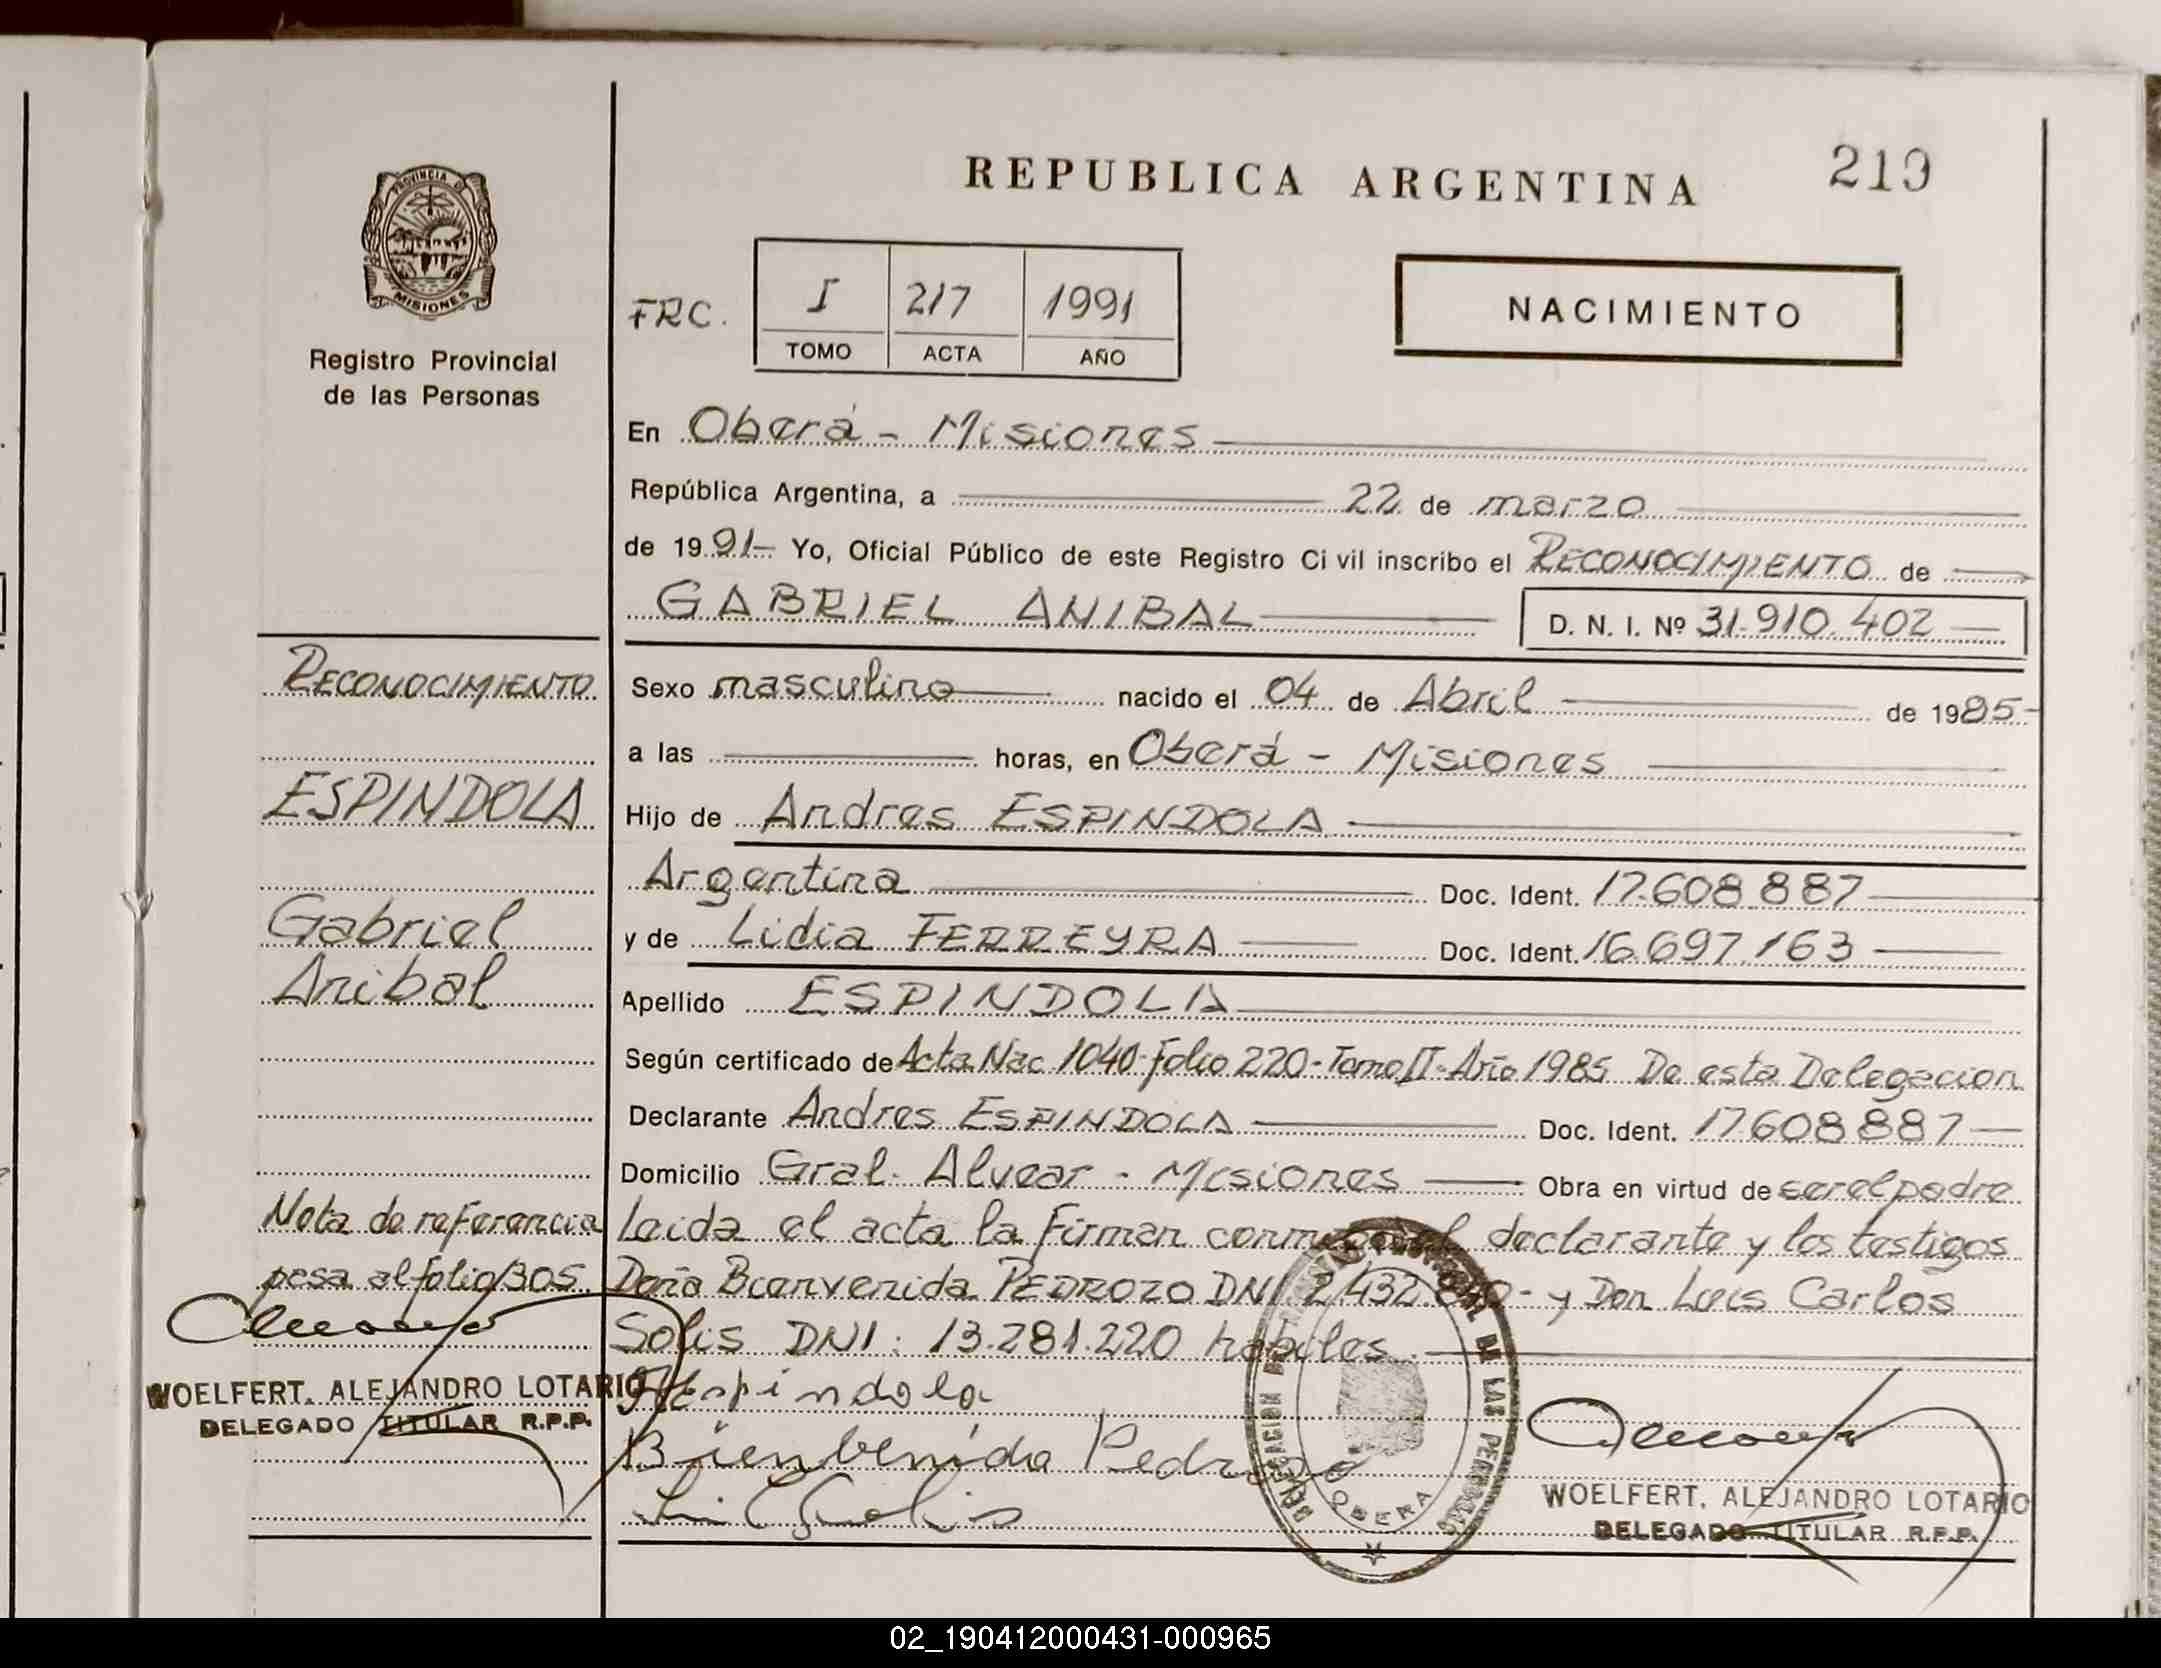 REPUBLICA ARGENTINA
219
PROVINCIA D MISIONES
Registro Provincial
de las Personas
FRC.
I 217 1991
TOMO ACTA AÑO
NACIMIENTO
En Oberá - Misiones
República Argentina, a 22 de marzo
de 1991- Yo, Oficial Público de este Registro Civil inscribo el RECONOCIMIENTO de
GABRIEL ANIBAL D. N. I. Nº 31.910.402
Sexo masculino nacido el 04 de Abril de 1985-
a las horas, en Oberá - Misiones
Hijo de Andres ESPINDOLA
Argentina Doc. Ident. 17.608.887
y de Lidia FERREYRA Doc. Ident. 16.697.163
Apellido ESPINDOLA
Según certificado de Acta Nac 1040-Folio 220-Tomo II-Año 1985 De esta Delegacion
Declarante Andres ESPINDOLA Doc. Ident. 17.608.887
Domicilio Gral. Alvear - Misiones Obra en virtud de ser el padre
Leida el acta la Firman declarante y los testigos
Doña Bienvenida PEDROZO DNI - y Don Luis Carlos
Solis DNI: 13.281.220 habiles.
RECONOCIMIENTO
ESPINDOLA
Gabriel
Anibal
Nota de referencia
pasa al folio 305
WOELFERT, ALEJANDRO LOTARIO
DELEGADO TITULAR R.P.P.
Espindola
Bienbenida Pedrozo
DELEGACION DE LAS PERSONAS
OBERA
WOELFERT, ALEJANDRO LOTARIO
DELEGADO TITULAR R.P.P.
02_190412000431-000965